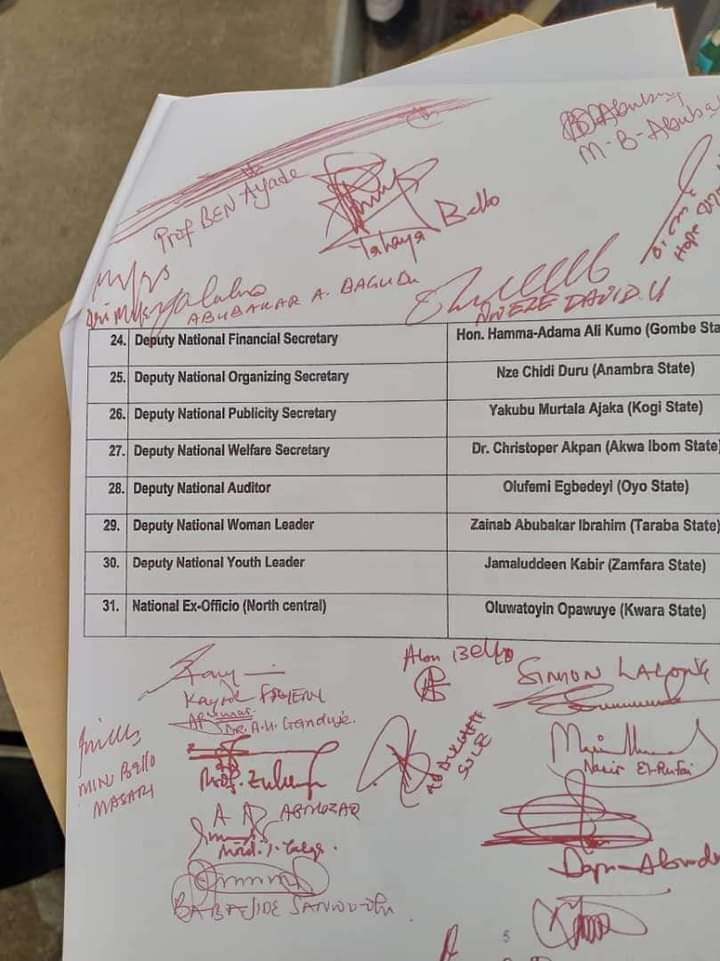 Prof BEN Ayade
Yahaya Bello
M-B-Abubak
Hope
ABUBAKAR A. BAGUDU
DAVID U
24. Deputy National Financial Secretary Hon. Hamma-Adama Ali Kumo (Gombe Sta
25. Deputy National Organizing Secretary Nze Chidi Duru (Anambra State)
26. Deputy National Publicity Secretary Yakubu Murtala Ajaka (Kogi State)
27. Deputy National Welfare Secretary Dr. Christoper Akpan (Akwa Ibom State)
28. Deputy National Auditor Olufemi Egbedeyi (Oyo State)
29. Deputy National Woman Leader Zainab Abubakar Ibrahim (Taraba State)
30. Deputy National Youth Leader Jamaluddeen Kabir (Zamfara State)
31. National Ex-Officio (North central) Oluwatoyin Opawuye (Kwara State)
Bello
SIMON LALONG
Dr. A.U. Ganduje.
Nasir El-Rufai
ABDULLAHI
SULE
Bello
MASARI
Prof. Zulum
BABAJIDE SANWO-OLU
5